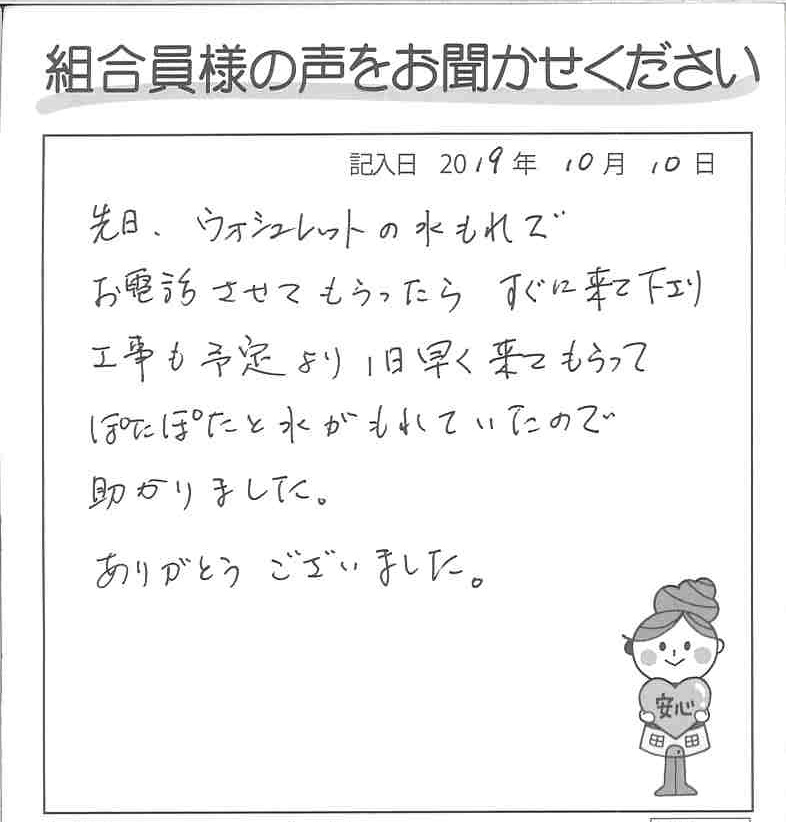 組合員様の声をお聞かせください
記入日 2019年 10月 10日
先日、ウォシュレットの水もれで
お電話させてもらったら すぐに来て下さり
工事も予定より1日早く来てもらって
ぽたぽたと水がもれていたので
助かりました。
ありがとうございました。
安心